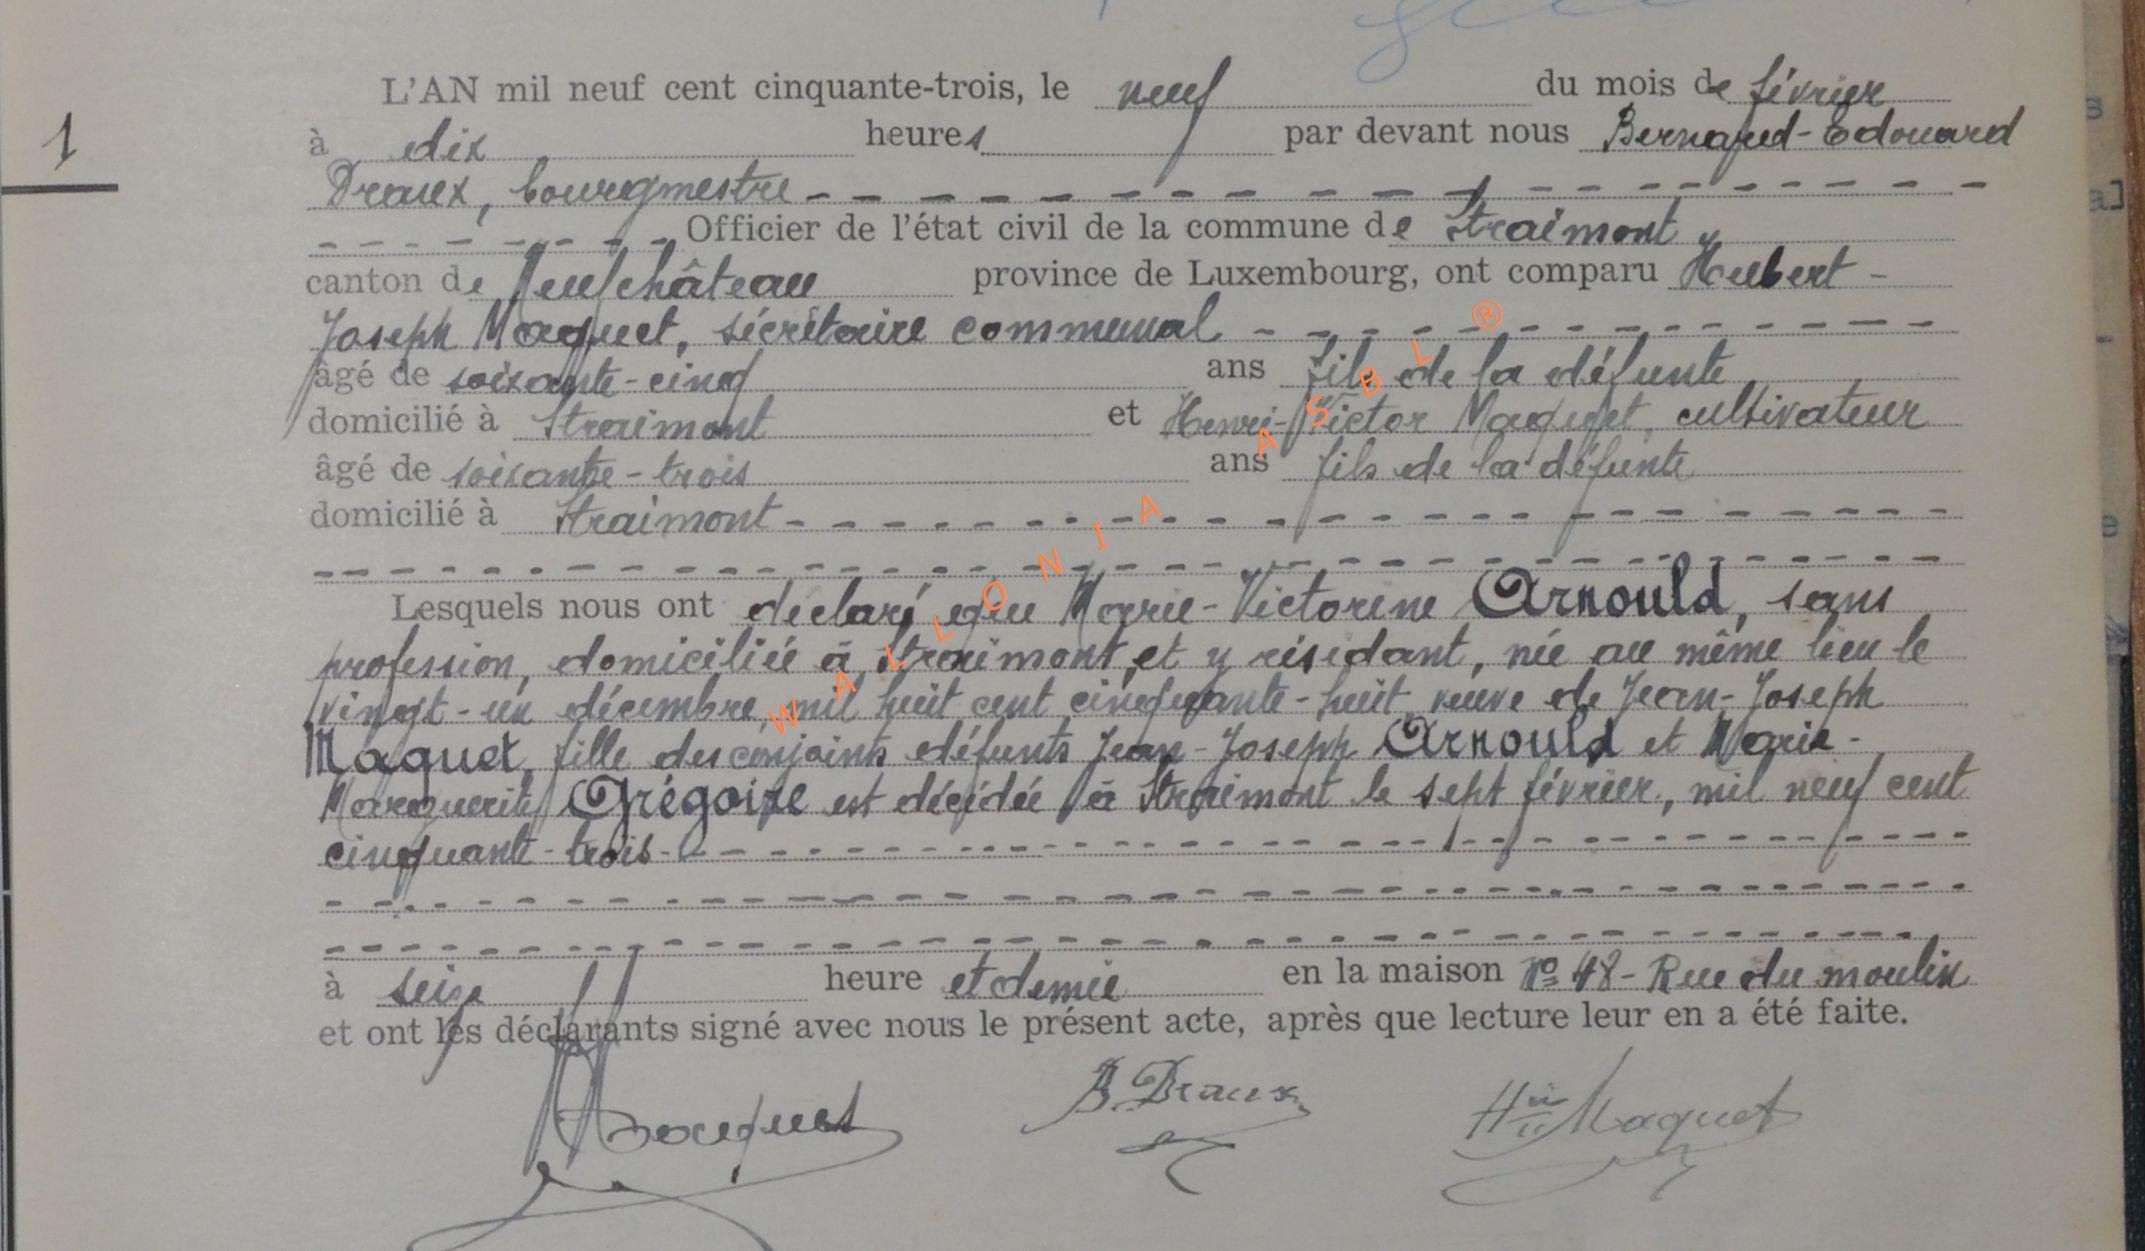 L'AN mil neuf cent cinquante-trois, le neuf du mois de février
1
à dix heures par devant nous Bernard-Edouard
Draux, bourgmestre
Officier de l'état civil de la commune de Straimont,
canton de Neufchâteau province de Luxembourg, ont comparu Hubert-
Joseph Maquet, secrétaire communal
âgé de soixante-cinq ans fils de la défunte
domicilié à Straimont et Henri-Victor Maquet, cultivateur
âgé de soixante-trois ans fils de la défunte
domicilié à Straimont
Lesquels nous ont déclaré que Marie-Victorine Arnould, sans
profession, domiciliée à Straimont, et y résidant, née au même lieu le
vingt-un décembre, mil huit cent cinquante-huit, veuve de Jean-Joseph
Maquet, fille des conjoints défunts Jean-Joseph Arnould et Marie-
Marguerite Grégoire est décédée à Straimont le sept février, mil neuf cent
cinquante-trois
à seize heure et demie en la maison N° 48 - Rue du moulin
et ont les déclarants signé avec nous le présent acte, après que lecture leur en a été faite.
Maquet B. Draux Hri Maquet
WALLONIA ASBL ®